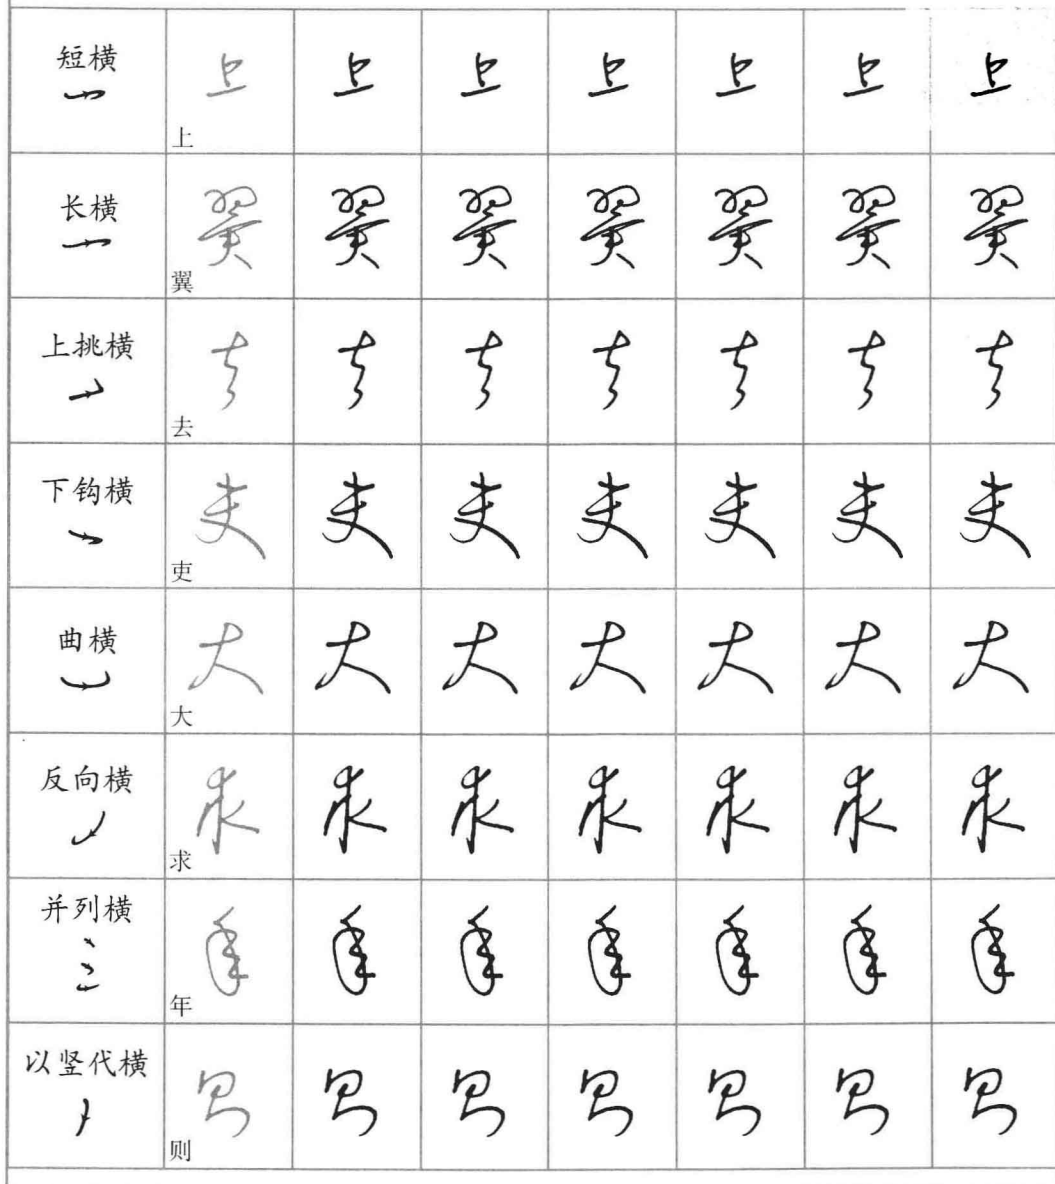 短横 上 上 上 上 上 上 上
上
长横 翼 翼 翼 翼 翼 翼 翼
翼
上挑横 去 去 去 去 去 去 去
去
下钩横 吏 吏 吏 吏 吏 吏 吏
吏
曲横 大 大 大 大 大 大 大
大
反向横 求 求 求 求 求 求 求
求
并列横 年 年 年 年 年 年 年
年
以竖代横 则 则 则 则 则 则 则
则